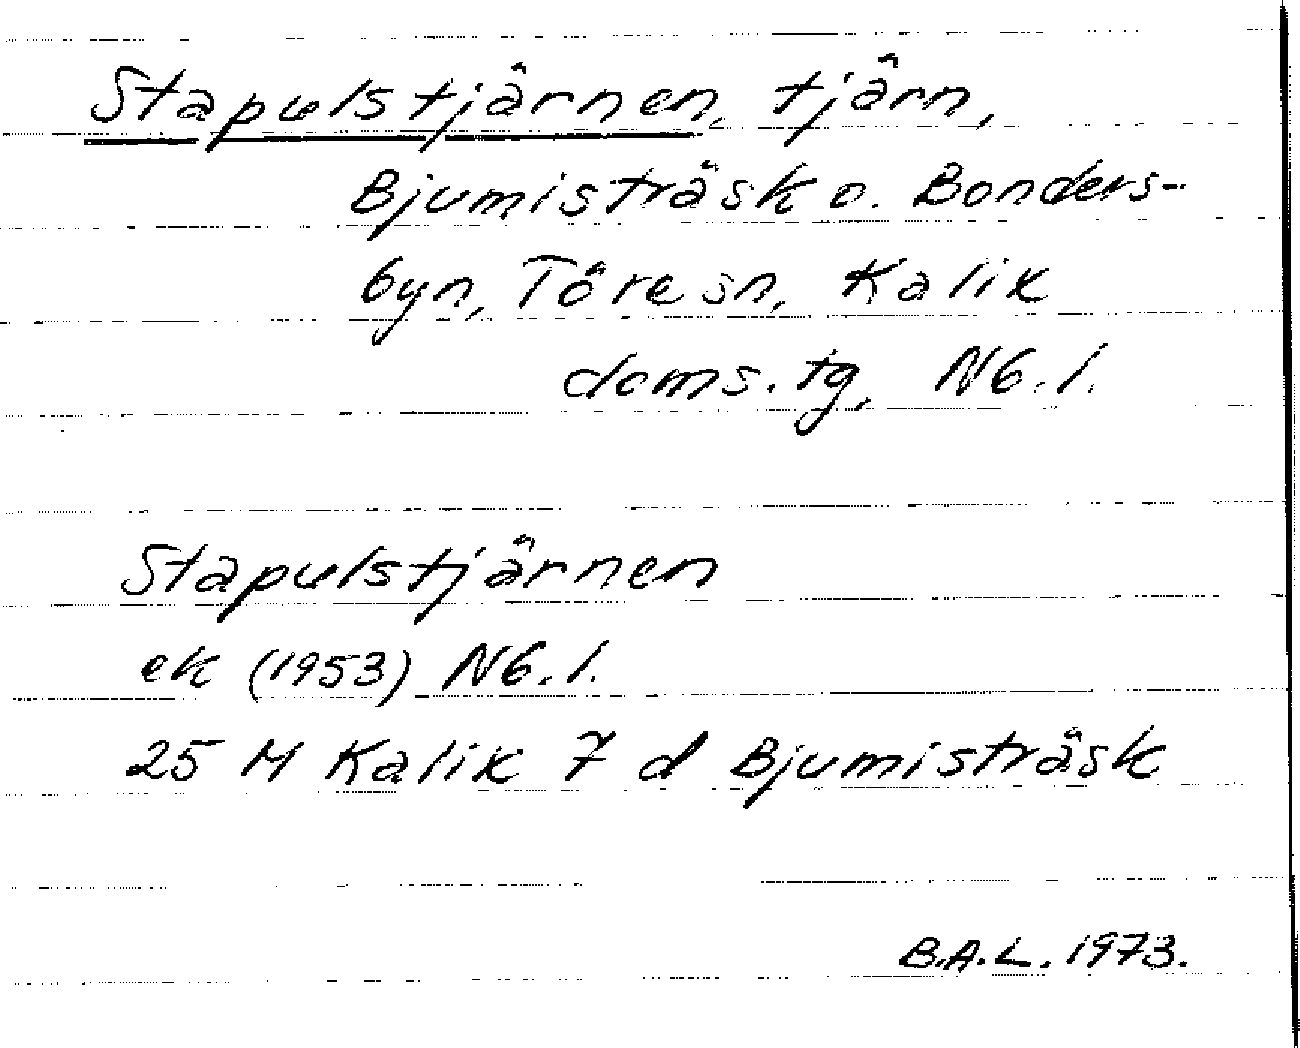 Stapulstjärnen, tjärn,
Bjumisträsk o. Bonders-
byn, Töre sn, Kalix
doms. tg, Nb. l.
Stapulstjärnen
ek (1953) Nb. l.
25 M Kalix 7 d Bjumisträsk
B.A.L. 1973.